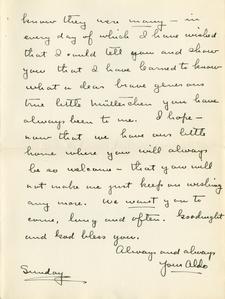 know they were many – in
every day of which I have wished
that I could tell you and show
you that I have learned to know
what a dear brave generous
true little Mütterchen you have
always been to me. I hope –
now that we have our little
home where you will always
be so welcome – that you will
not make me just keep on wishing
any more. We want you to
come, long and often. Goodnight
and God bless you.
Always and always
Your Aldo
Sunday